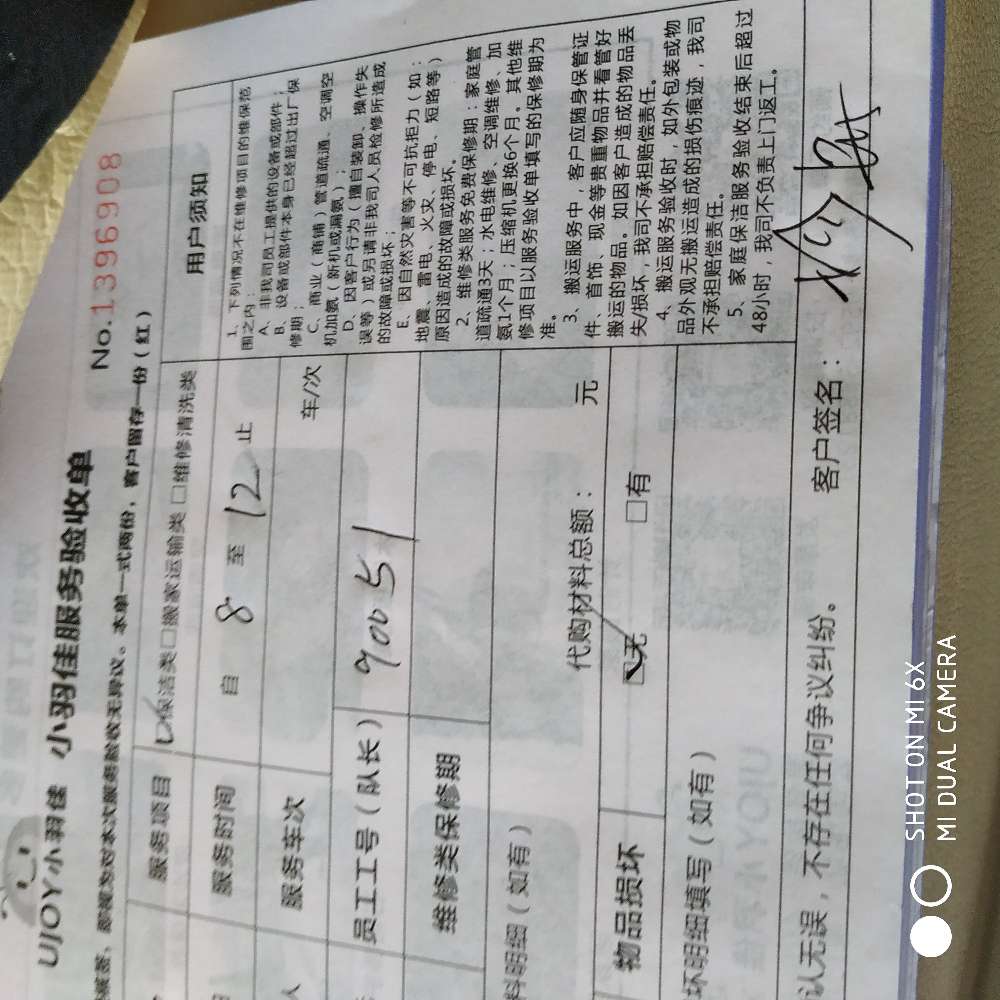 No.1396908
UJOY小羽佳 小羽佳服务验收单
本单一式两份，客户留存一份（红）
服务项目
保洁类□搬家运输类□维修清洗类
服务时间
自 8 至 12 止
服务车次
车/次
员工工号（队长）
90051
维修类保修期
料明细（如有）
代购材料总额：
元
物品损坏
☑无
□有
坏明细填写（如有）
用户须知
1、下列情况不在维修项目的维保范
围之内：
A、非我司员工提供的设备或部件；
B、设备或部件本身已经超过出厂保
修期；
C、商业（商铺）管道疏通、空调空
机加氨（新机或漏氨）；
D、因客户行为（擅自装卸、操作失
误等）或另请非我司人员检修所造成
的故障或损坏；
E、因自然灾害等不可抗拒力（如：
地震、雷电、火灾、停电、短路等）
原因造成的故障或损坏。
2、维修类服务免费保修期：家庭管
道疏通3天；水电维修、空调维修、加
氨1个月；压缩机更换6个月。其他维
修项目以服务验收单填写的保修期为
准。
3、搬运服务中，客户应随身保管证
件、首饰、现金等贵重物品并看管好
搬运的物品。如因客户造成的物品丢
失/损坏，我司不承担赔偿责任。
4、搬运服务验收时，如外包装或物
品外观无搬运造成的损伤痕迹，我司
不承担赔偿责任。
5、家庭保洁服务验收结束后超过
48小时，我司不负责上门返工。
认无误，不存在任何争议纠纷。
客户签名：
SHOT ON MI 6X
MI DUAL CAMERA